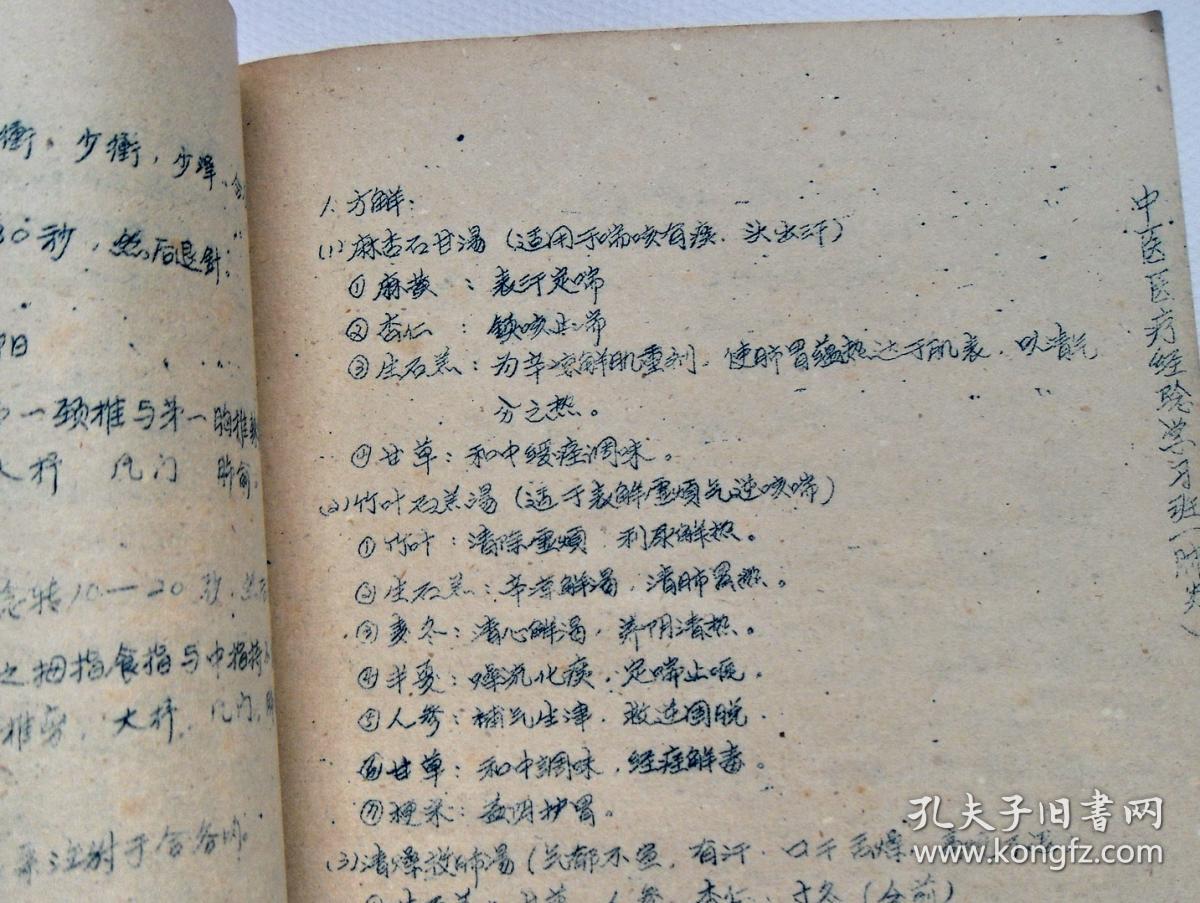 衝、少衝，少澤、合
30秒，然后退針。
阳
一颈椎与第一胸椎
大杼 风门 肺俞。
捻转10—20秒，然后
之拇指食指与中指持
椎旁，大杼，风门，肺
1. 方解：
(1) 麻杏石甘湯（适用于喘咳有痰、头出汗）
① 麻黄：表汗定喘
② 杏仁：镇咳止喘
③ 生石羔：为辛凉解肌重剂，使肺胃蕴热达于肌表，以清气
分之热。
④ 甘草：和中缓痙调味。
(2) 竹叶石羔湯（适于表解虚煩气逆咳喘）
① 竹叶：清除虚煩，利尿解热。
② 生石羔：辛凉解渴，清肺胃热。
③ 麦冬：清心解渴，养阴清热。
④ 半夏：燥湿化痰，定喘止呕。
⑤ 人参：補气生津，救逆固脱．
⑥ 甘草：和中調味，经痙解毒。
⑦ 粳米：益阴护胃。
(3) 清燥救肺湯（气郁不宣，有汗，口干舌燥
① 生石羔、甘草、人参、杏仁、寸冬（仝前）
中医医疗经验学习班（肺炎）
孔夫子旧书网
www.kongfz.com